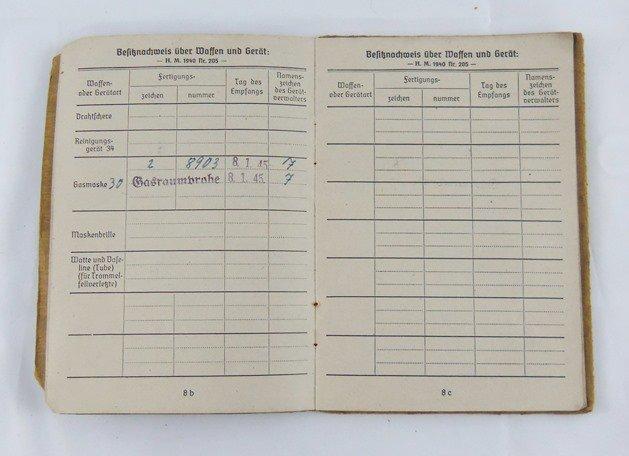 Besitznachweis über Waffen und Gerät:
— H. M. 1940 Nr. 205 —
Waffen-
oder Gerätart
Fertigungs-
zeichen
nummer
Tag des
Empfangs
Namens-
zeichen
des Gerät-
verwalters
Drahtschere
Reinigungs-
gerät 34
2 8903 8. 1. 45. 7
Gasmaske 30 Gasraumprobe 8. 1. 45. 7
Maskenbrille
Watte und Vase-
line (Tube)
(für Trommel-
fellverletzte)
8 b
Besitznachweis über Waffen und Gerät:
— H. M. 1940 Nr. 205 —
Waffen-
oder Gerätart
Fertigungs-
zeichen
nummer
Tag des
Empfangs
Namens-
zeichen
des Gerät-
verwalters
8 c